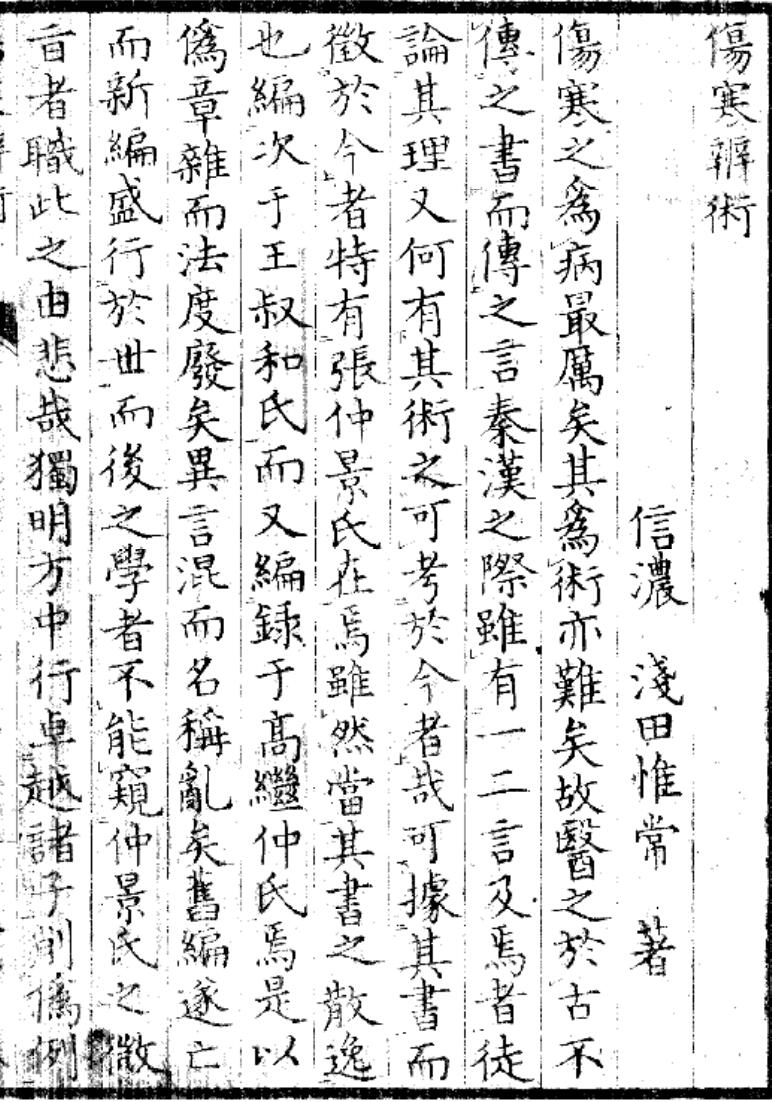 傷寒辨術
信濃 淺田惟常 著
傷寒之為病最厲矣其為術亦難矣故醫之於古不
傳之書而傳之言秦漢之際雖有一二言及焉者徒
論其理又何有其術之可考於今者哉可據其書而
徵於今者特有張仲景氏在焉雖然當其書之散逸
也編次于王叔和氏而又編錄于高繼仲氏焉是以
偽章雜而法度廢矣異言混而名稱亂矣舊編遂亡
而新編盛行於世而後之學者不能窺仲景氏之微
旨者職此之由悲哉獨明方中行卓越諸子削偽例